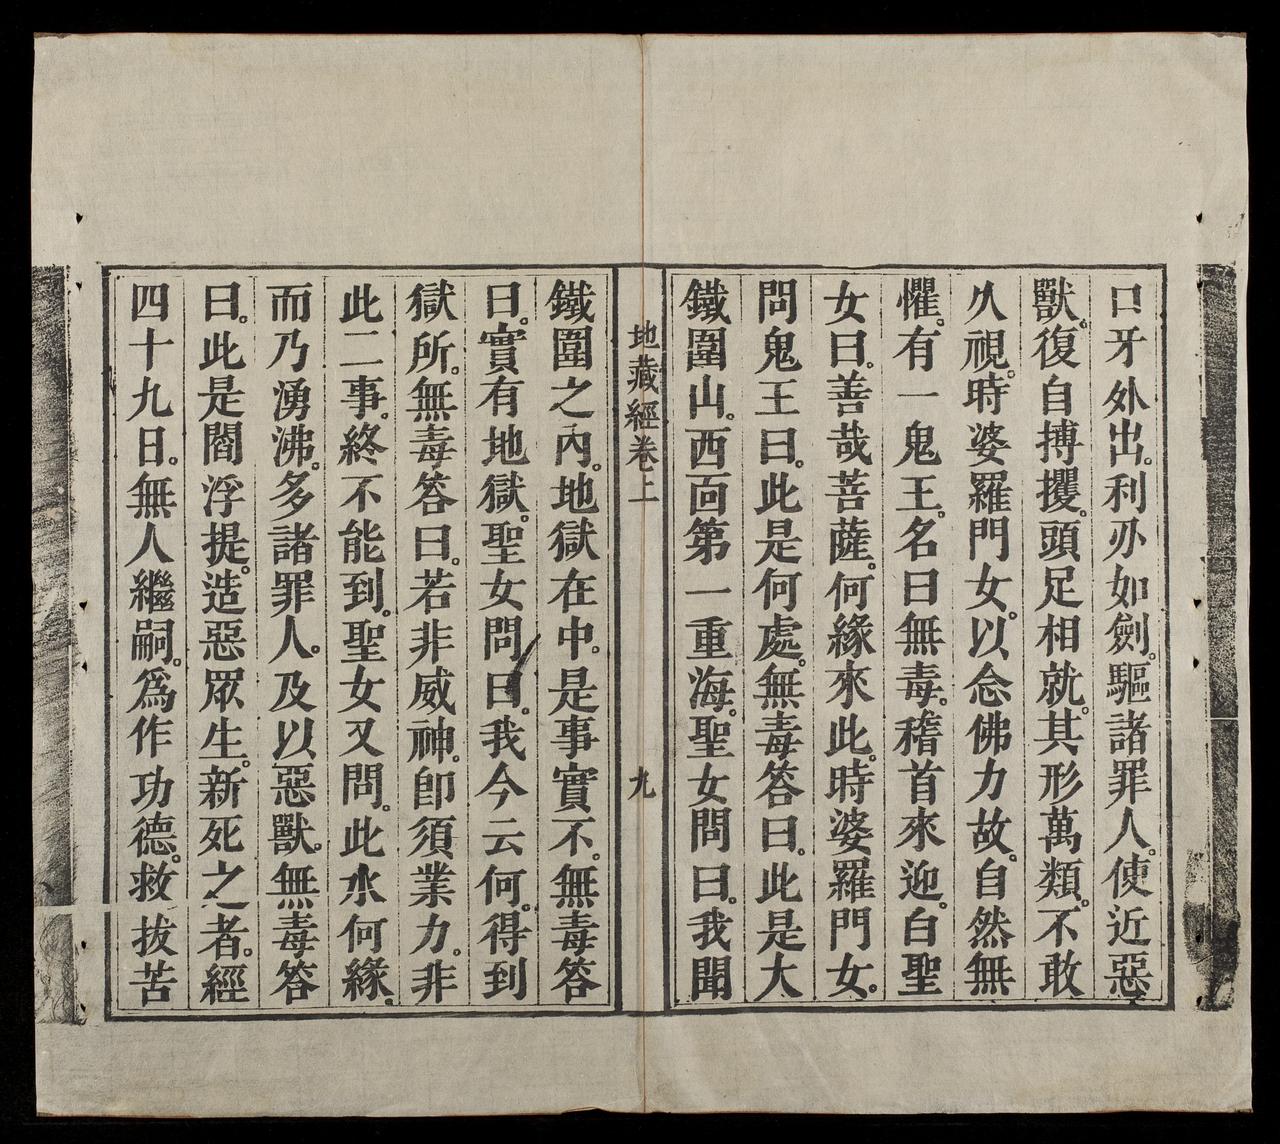 口牙外出。利刃如劍。驅諸罪人。使近惡
獸。復自搏攫。頭足相就。其形萬類。不敢
久視。時婆羅門女。以念佛力故。自然無
懼。有一鬼王。名曰無毒。稽首來迎。白聖
女曰。善哉菩薩。何緣來此。時婆羅門女。
問鬼王曰。此是何處。無毒答曰。此是大
鐵圍山。西面第一重海。聖女問曰。我聞
地藏經卷上 九
鐵圍之內。地獄在中。是事實不。無毒答
曰。實有地獄。聖女問曰。我今云何。得到
獄所。無毒答曰。若非威神。卽須業力。非
此二事。終不能到。聖女又問。此水何緣。
而乃湧沸。多諸罪人。及以惡獸。無毒答
曰。此是閻浮提。造惡眾生。新死之者。經
四十九日。無人繼嗣。爲作功德。救拔苦